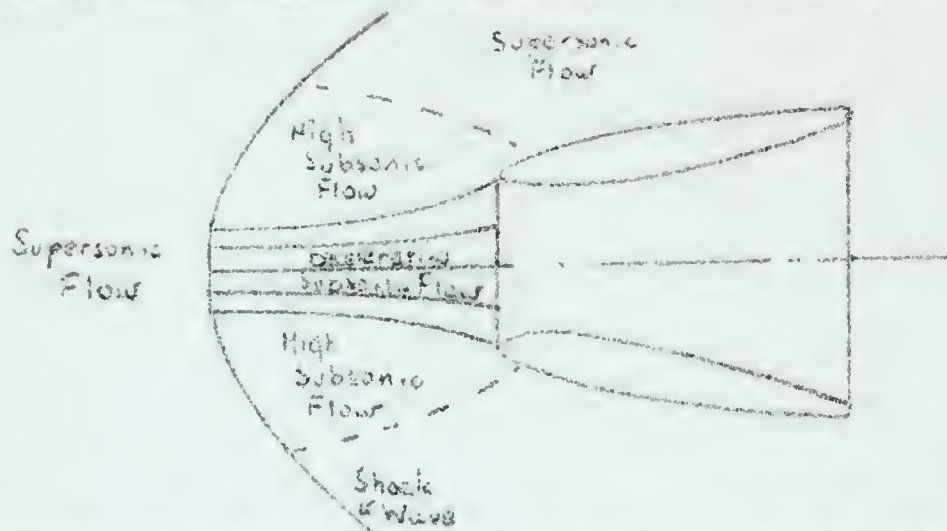 Supersonic
Flow
High
Subsonic
Flow
Supersonic
Flow
Subsonic Flow
High
Subsonic
Flow
Shock
Wave